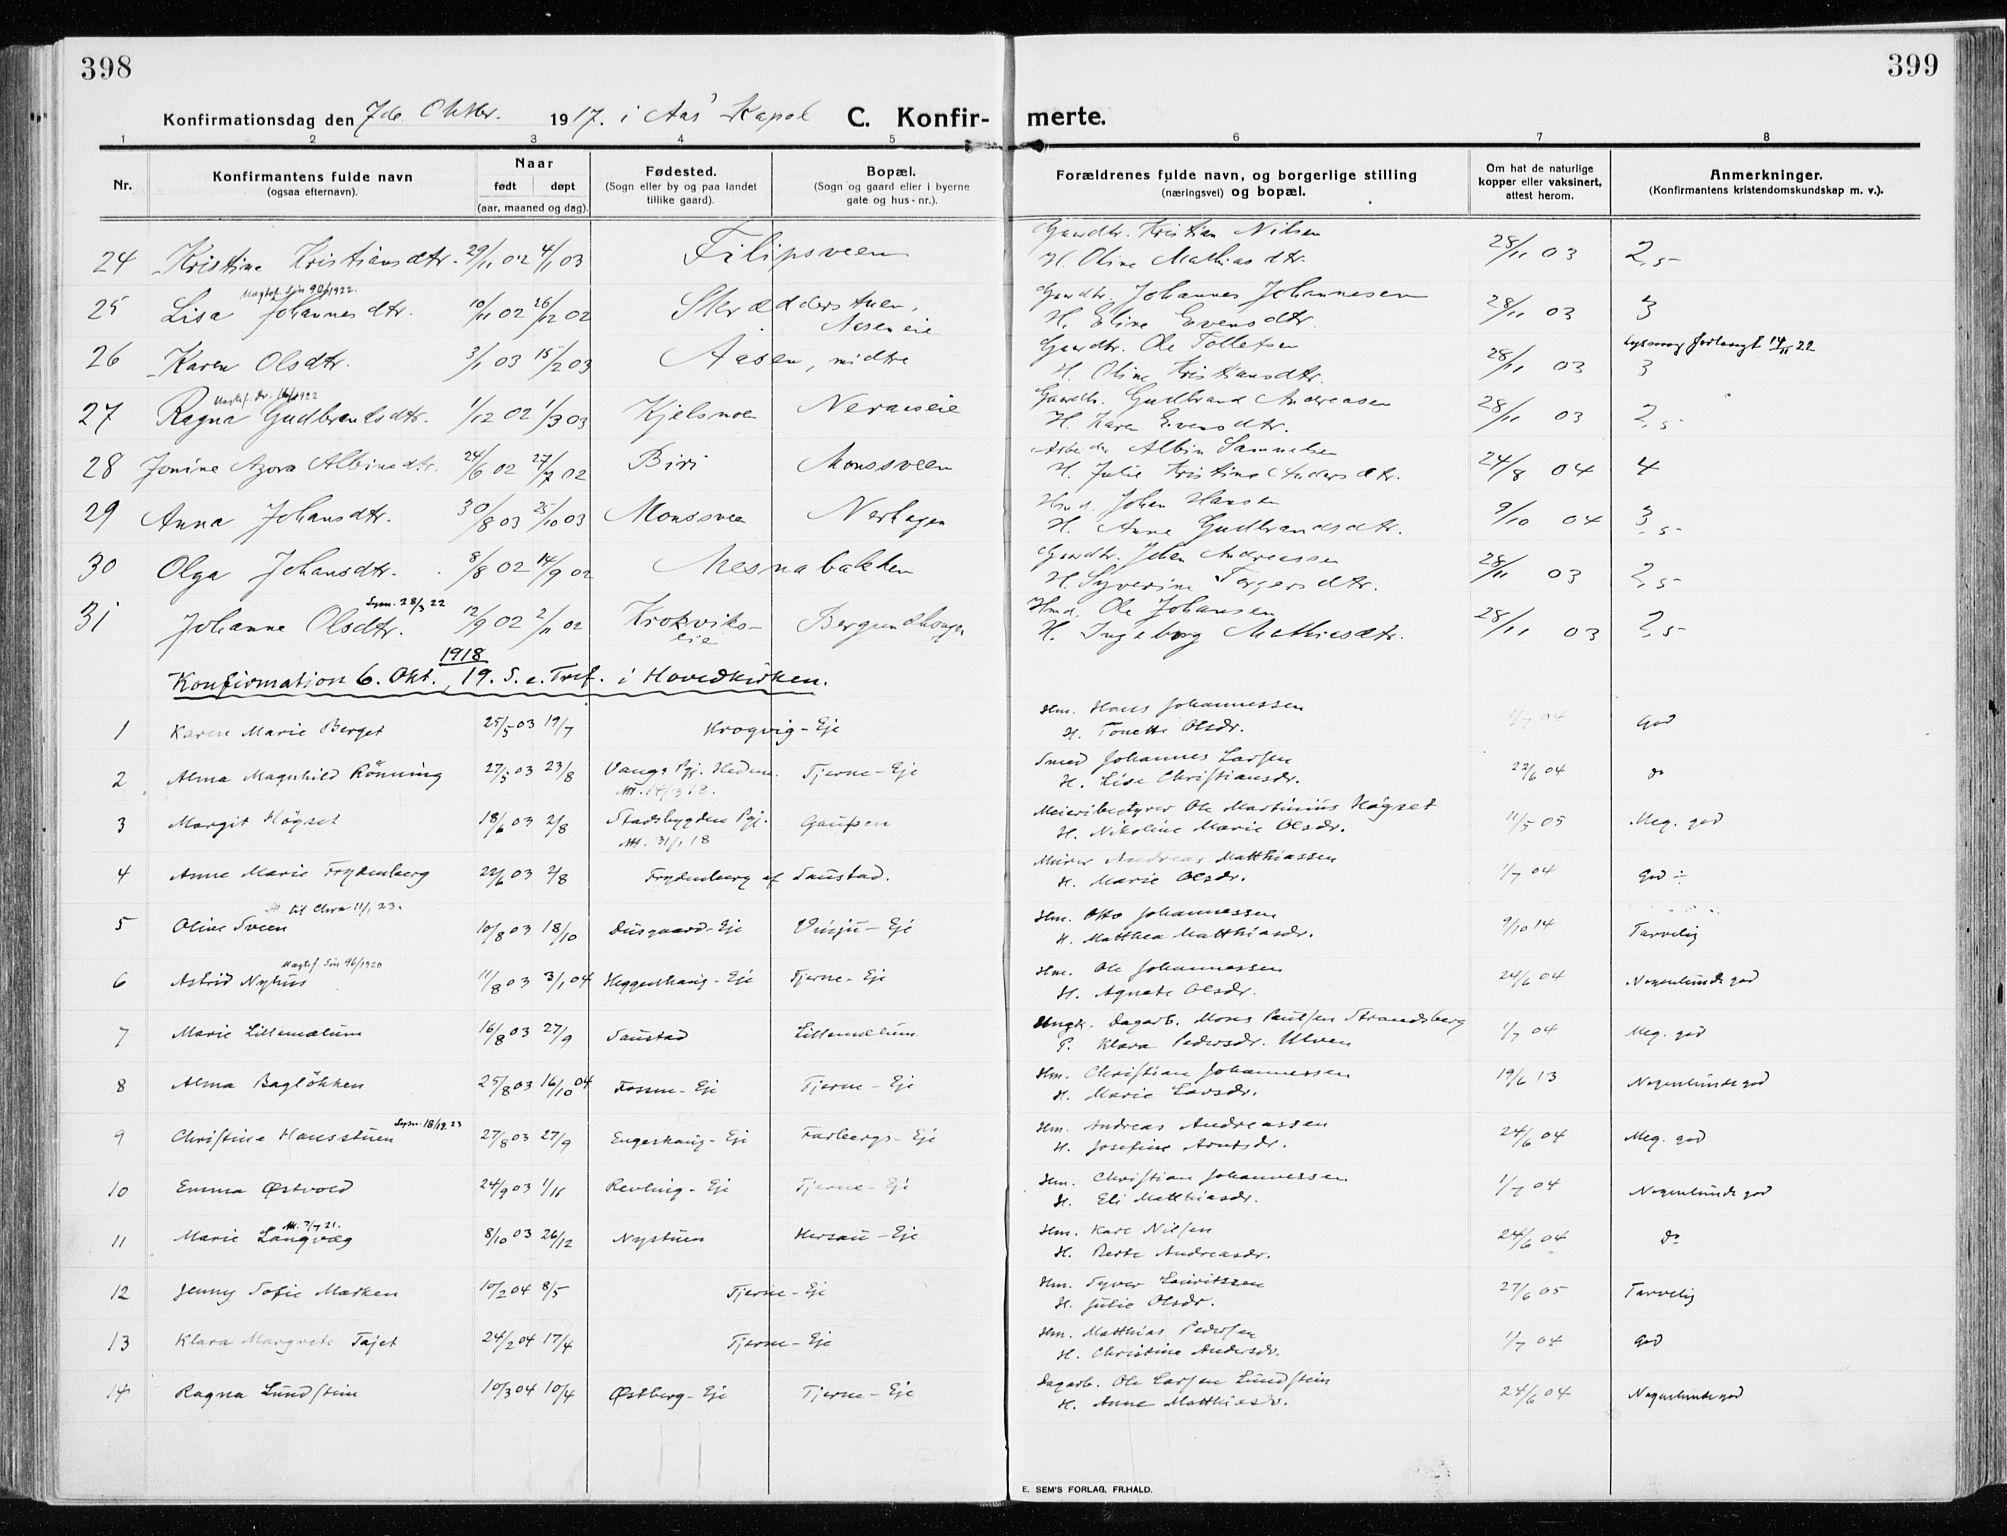 398
399
Konfirmationsdag den 7de Oktbr. 1917. i Aas Kapel C. Konfir- merte.
1 2 3 4 5 6 7 8
Nr.
Konfirmantens fulde navn
(ogsaa efternavn).
Naar
født døpt
(aar, maaned og dag).
Fødested.
(Sogn eller by og paa landet
tillike gaard).
Bopæl.
(Sogn og gaard eller i byerne
gate og hus-nr.).
Forældrenes fulde navn, og borgerlige stilling
(næringsvei) og bopæl.
Om hat de naturlige
kopper eller vaksinert,
attest herom.
Anmerkninger.
(Konfirmantens kristendomskundskap m. v.).
Gaardbr. Kristian Nilsen
24 Kristine Kristiansdtr. 29/11 02 4/1 03 Filipsveen H. Oline Mathiasdtr. 28/11 03 2,5
1922.
Gaardbr. Johannes Johannesen
25 Lisa Johannesdtr. 10/11 02 26/12 02 Skrædderstuen, H. Eline Evensdtr. 28/11 03 3
Neseneie
Gaardbr. Ole Tollefsen Lysning forlangt 14/11 22
26 Karen Olsdtr. 3/1 03 15/2 03 Aasen, midtre H. Oline Kristiansdtr. 28/11 03 3
Gaardbr. Gudbrand Andreasen
27 Ragna Gudbrandsdtr. 1/12 02 1/3 03 Kjelsmoen H. Karen Evensdtr. 28/11 03 2,5
Arbeider Albin Samuelsen
28 Jonine Azora Albinsdtr. 24/6 02 27/7 02 Biri Monssveen H. Julie Kristine Andersdtr. 24/8 04 4
Hmd. Johan Hansen
29 Anna Johansdtr. 30/8 03 25/10 03 Monssveen Nerhagen H. Anne Gudbrandsdtr. 9/10 04 3,5
Gaardbr. Johan Andreassen
30 Olga Johansdtr. 8/8 02 14/9 02 Mesnabakken H. Syverine Torgersdtr. 28/11 03 2,5
Sgm. 28/3 22
Hmd. Ole Johansen
31 Johanne Olsdtr. 12/9 02 2/11 02 Krokviks- Bergundhaugen H. Ingeborg Mathiasdtr. 28/11 03 2,5
eie
1918
Konfirmation 6. Okt., 19. S. e. Tref. i Hovedkirken.
Hm. Hans Johannessen
1 Karen Marie Berget 25/5 03 19/7 Krogvig-Eje H. Tonette Olsdr. 1/7 04 God
Smed Johannes Larsen
2 Alma Magnhild Rönning 27/5 03 23/8 Vangs Pgj. Hedm. Tjerne-Eje H. Lise Christiansdr. 22/6 04 do
Meieribestyrer Ole Martinius Högset
3 Margit Högset 18/6 03 2/8 Stadsbygden Pgj. Gaupen H. Nikoline Marie Olsdr. 11/5 05 Meg. god
Att. 31/1 18
Murer Andreas Matthiassen
4 Anne Marie Frydenberg 22/6 03 2/8 Frydenberg af Saustad. H. Marie Olsdr. 1/7 04 God ÷
til Chra 11/1 23.
Hm. Otto Johannessen
5 Oline Sveen 10/8 03 18/10 Diisgaard-Eje H. Matthea Matthiasdr. 9/10 14 Tarvelig
Hm. Ole Johannessen
6 Astrid Nyhus 11/8 03 3/1 04 Heggenhaug-Eje Tjerne-Eje H. Agnete Olsdr. 24/6 04 Nogenlunde god
Ungk. Dagarb. Mons Paulsen Strandsberg
7 Marie Lillemælum 16/8 03 27/9 Saustad Lillemælum P. Klara Pedersdr. Ulven 1/7 04 Meg. god
Hm. Christian Johannessen
8 Alma Bagløkken 25/8 03 16/10 04 Fossum-Eje Tjerne-Eje H. Marie Larsdr. 19/6 13 Nogenlunde god
Sgm. 18/12 23
Hm. Andreas Andreassen
9 Christine Hansstuen 27/8 03 27/9 Engeshaug-Eje Farbergs-Eje H. Josefine Arntsdr. 24/6 04 Meg. god
Hm. Christian Johannessen
10 Emma Østvold 24/9 03 1/11 Revling-Eje Tjerne-Eje H. Eli Matthiasdr. 1/7 04 Nogenlunde god
Att. 7/7 21.
Hm. Karl Nilsen
11 Marie Langvæg 8/10 03 26/12 Nystuen Hersau-Eje H. Berte Andreasdr. 24/6 04 do
Hm. Syver Lauritssen
12 Jenny Sofie Marken 10/2 04 8/5 Tjerne-Eje H. Julie Olsdr. 27/6 05 Tarvelig
Hm. Matthias Pedersen
13 Klara Margrete Tajet 24/2 04 17/4 Tjerne-Eje H. Christine Andersdr. 1/7 04 God
Dagarb. Ole Larsen Lundstein
14 Ragna Lundstein 10/3 04 10/4 Østberg-Eje Tjerne-Eje H. Anne Matthiasdr. 24/6 04 Nogenlunde god
E. SEM'S FORLAG, FR.HALD.